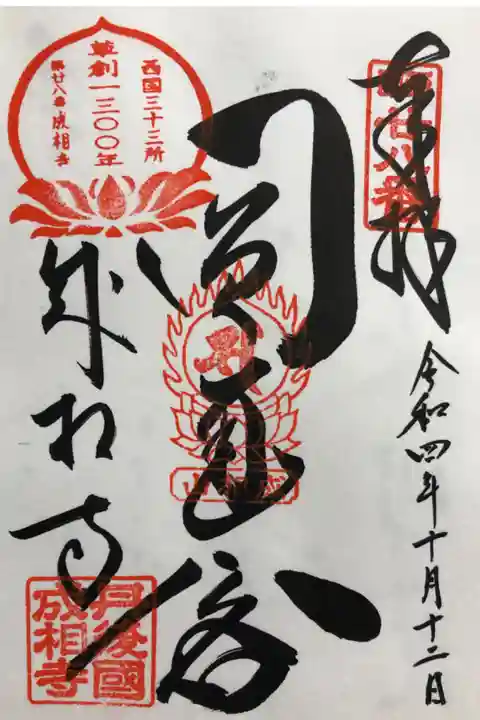 奉拝
第廿八番
令和四年十月十二日
圓通閣
西国三十三所
草創一三〇〇年
第廿八番成相寺
成相山
成相寺
丹後國
成相寺